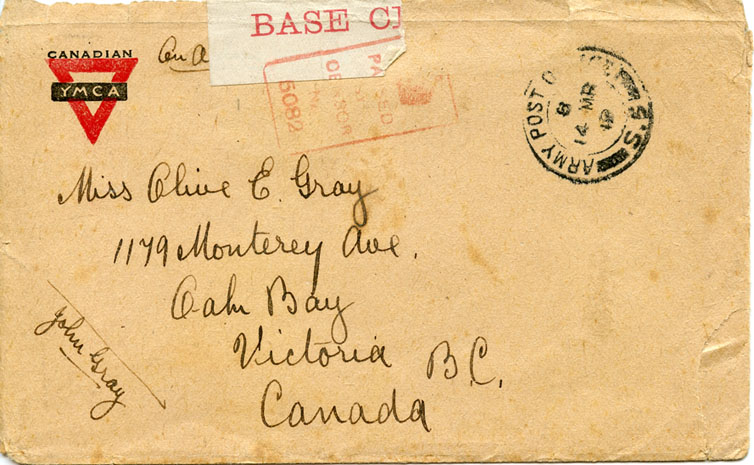 CANADIAN
YMCA
On A
BASE CE
PASSED
CENSOR
5082
ARMY POST OFFICE S.5
8
14 MR
Miss Olive E. Gray
1179 Monterey Ave.
Oak Bay
Victoria B.C.
Canada
John Gray